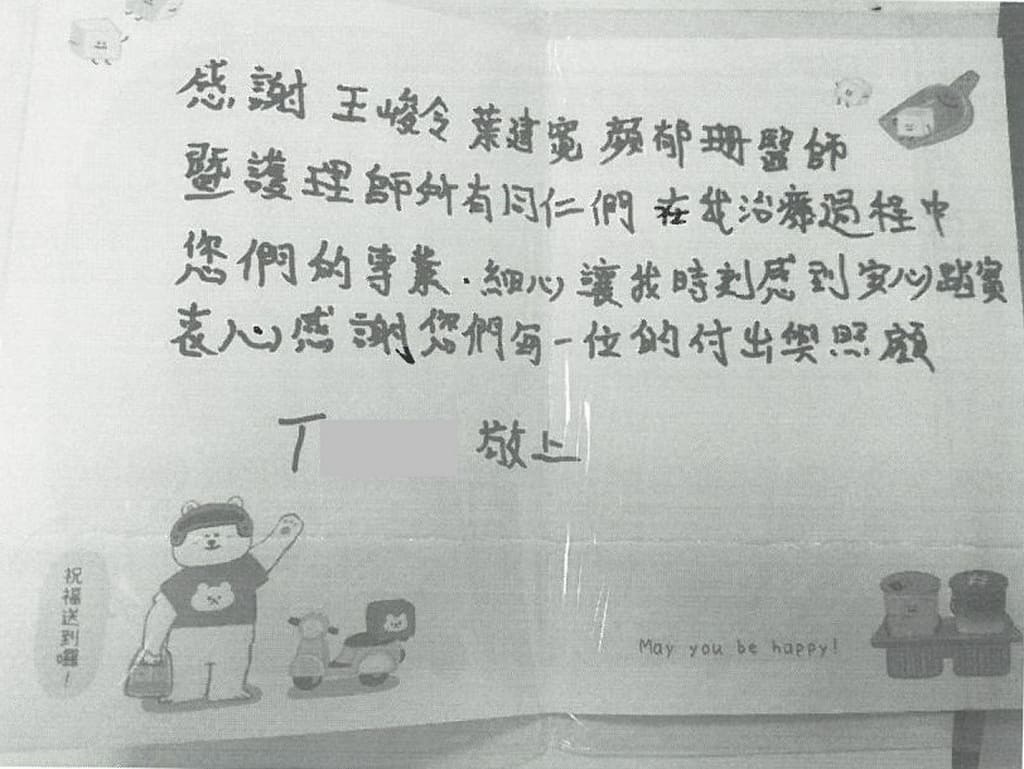 感謝 王峻令 葉建寬 顏郁珊醫師
暨護理師所有同仁們 在我治療過程中
您們的專業.細心讓我時刻感到安心踏實
衷心感謝您們每一位的付出與照顧
丁 敬上
祝福送到囉!
May you be happy!